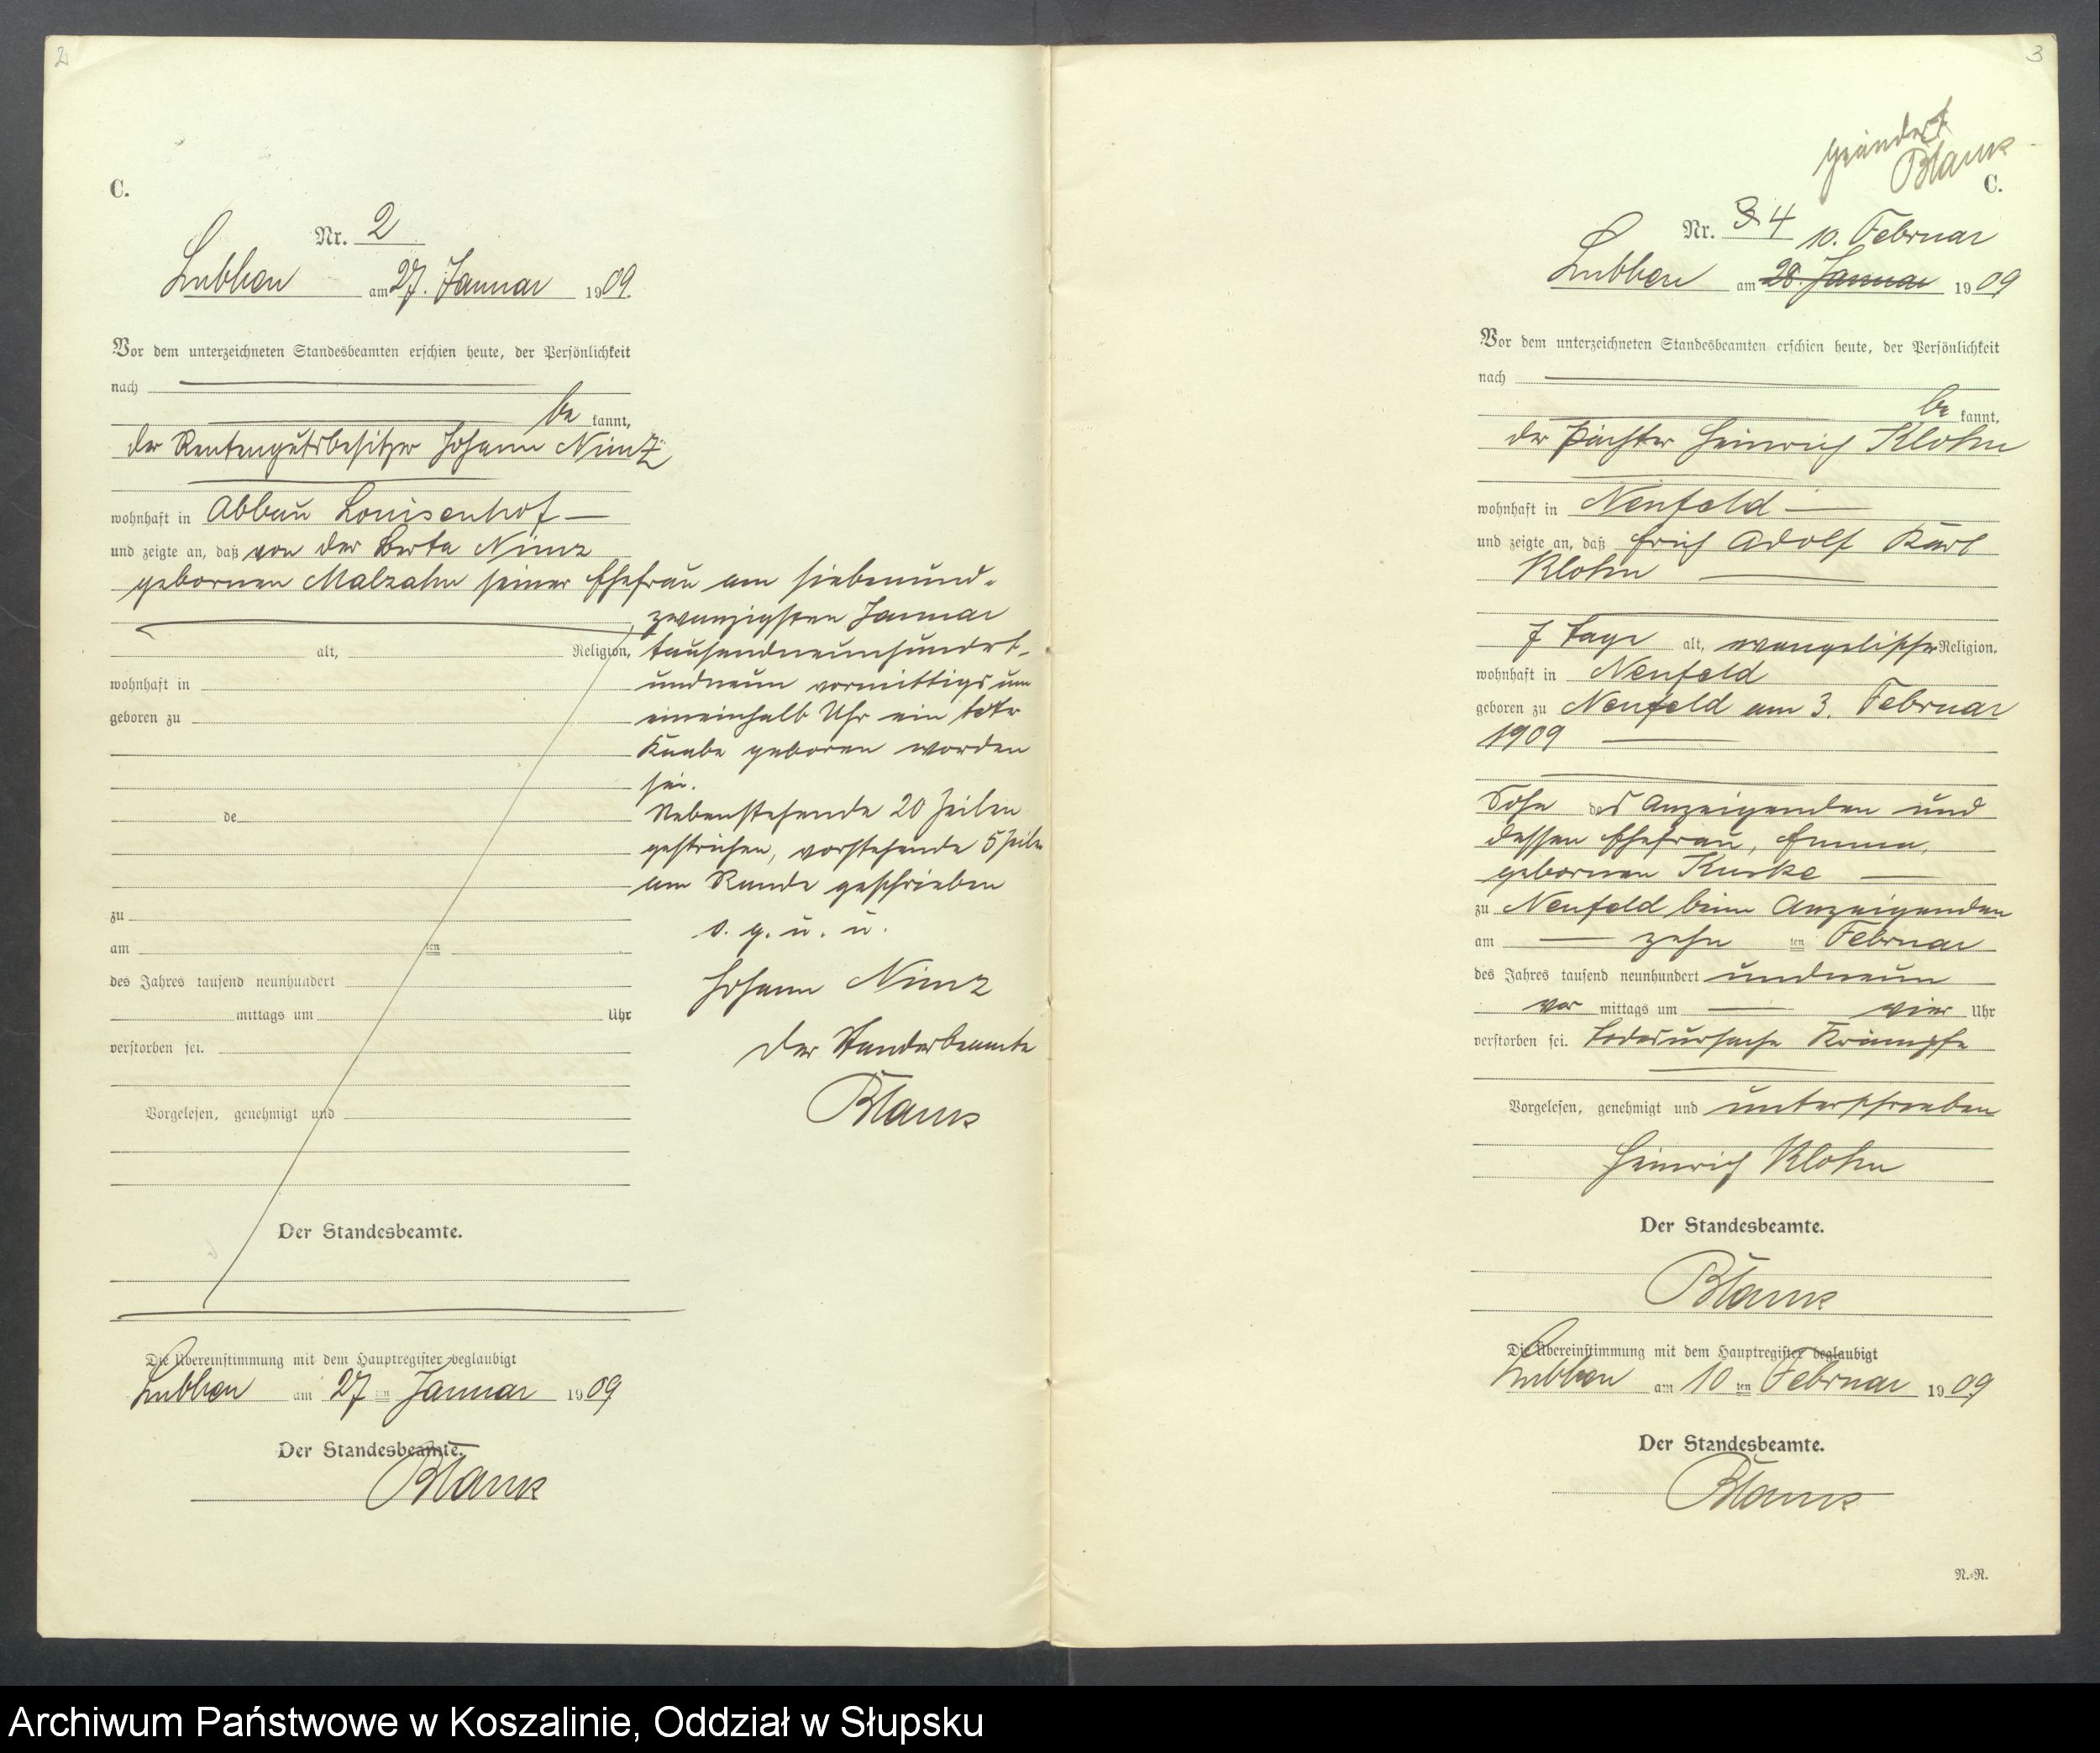 2
C.
Nr. 2
Lubben am 27. Januar 1909.
Vor dem unterzeichneten Standesbeamten erschien heute, der Persönlichkeit
nach
be kannt,
der Rentengutsbesitzer Johann Nimz
wohnhaft in Abbau Louisenhof
und zeigte an, daß von der Berta Nimz
gebornen Malzahn seiner Ehefrau am siebenund-
zwanzigsten Januar
tausendneunhundert-
undneun vormittags um
eineinhalb Uhr ein toter
Knabe geboren worden
sei.
Nebenstehende 20 Zeilen
gestrichen, vorstehende 5 Zeilen
am Rande geschrieben
v. g. u. u.
Johann Nimz
Der Standesbeamte
Blank
alt, Religion,
wohnhaft in
geboren zu
de
zu
am ten
des Jahres tausend neunhundert
mittags um Uhr
verstorben sei.
Vorgelesen, genehmigt und
Der Standesbeamte.
Die Übereinstimmung mit dem Hauptregister beglaubigt
Lubben am 27 ten Januar 1909
Der Standesbeamte.
Blank
3
geändert
Blank
C.
Nr. 3 4
10. Februar
Lubben am 28. Januar 1909
Vor dem unterzeichneten Standesbeamten erschien heute, der Persönlichkeit
nach
be kannt,
der Pächter Heinrich Klohn
wohnhaft in Neufeld
und zeigte an, daß Erich Adolf Karl
Klohn
7 Tage alt, evangelischer Religion,
wohnhaft in Neufeld
geboren zu Neufeld am 3. Februar
1909
Sohn des Anzeigenden und
dessen Ehefrau, Emma,
gebornen Kuske
zu Neufeld beim Anzeigenden
am zehn ten Februar
des Jahres tausend neunhundert undneun
vor mittags um vier Uhr
verstorben sei. Todesursache Krämpfe
Vorgelesen, genehmigt und unterschrieben
Heinrich Klohn
Der Standesbeamte.
Blank
Die Übereinstimmung mit dem Hauptregister beglaubigt
Lubben am 10 ten Februar 1909
Der Standesbeamte.
Blank
N.-N.
Archiwum Państwowe w Koszalinie, Oddział w Słupsku